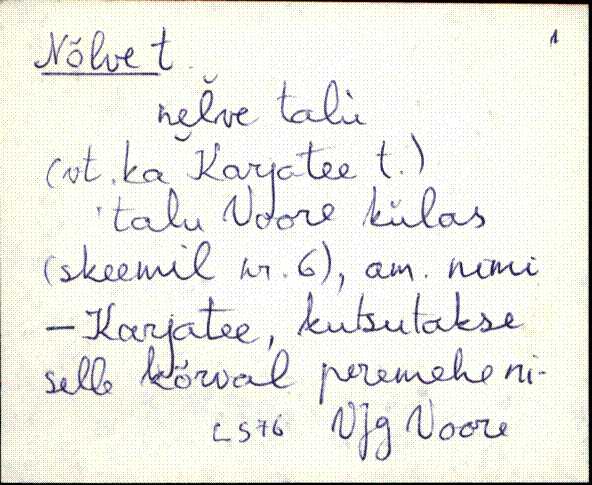 1
Nõlve t.
nẹl̆ve talù
(vt. ka Karjatee t.)
talu Voore külas
(skeemil nr. 6), am. nimi
– Karjatee, kutsutakse
selle kõrval peremehe ni-
LS76 VJg Voore